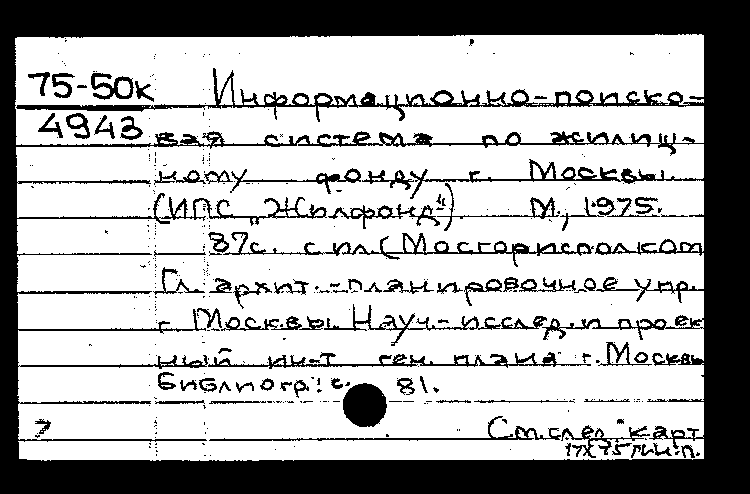 75-50к Информационно-поиско-
4943 вая система по жилищ-
ному фонду г. Москвы.
(ИПС „Жилфонд“). М., 1975.
87с. с ил. (Мосгорисполком
Гл. архит.-планировочное упр.
г. Москвы. Науч.-исслед. и проек
ный ин-т ген. плана г. Москвы
Библиогр.: с. 81.
См. след. карт